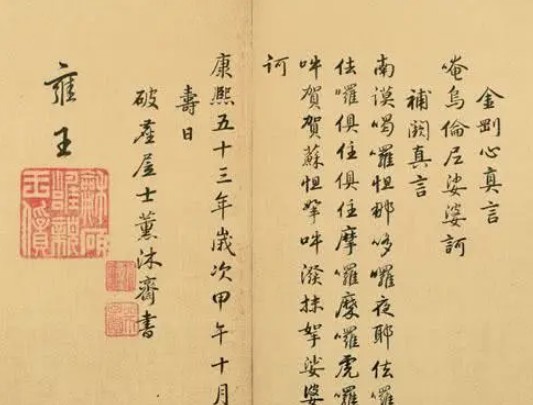 金剛心真言
唵烏倫尼娑婆訶
補闕真言
南謨喝囉怛那哆囉夜耶佉囉
佉囉俱住俱住摩囉摩囉虎囉
吽賀賀蘇怛拏吽潑抹拏娑婆
訶
康熙五十三年歲次甲午十月
壽日
破塵居士薰沐齋書
雍王